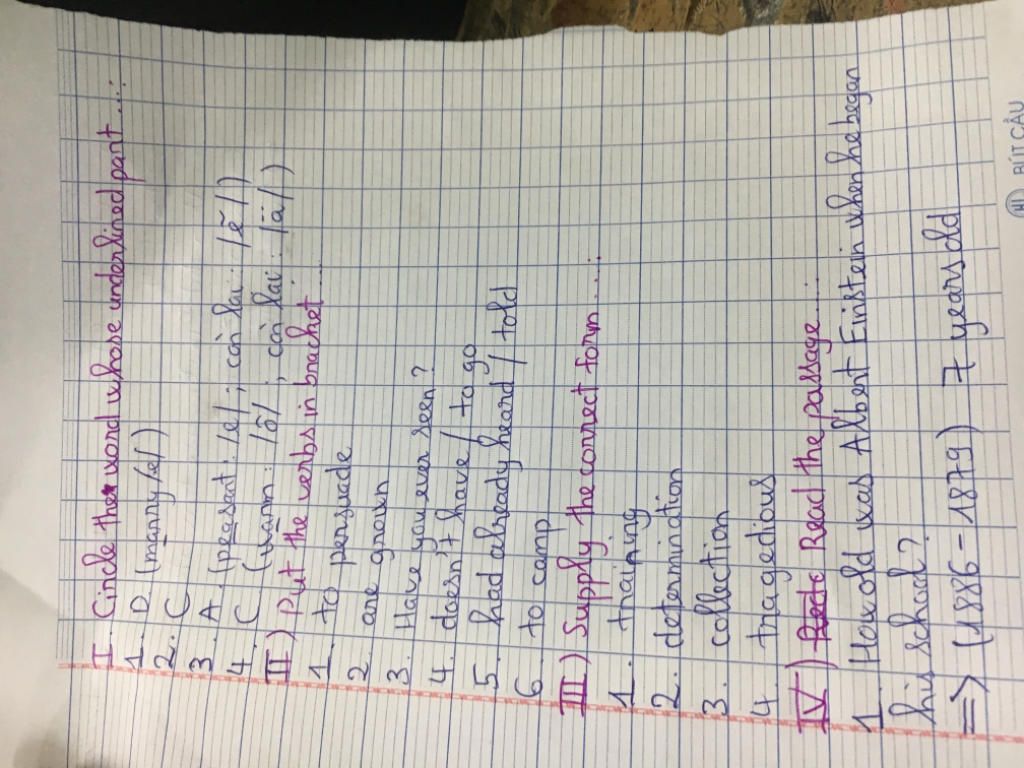 I. Circle the word whose underlined part ...:
1. D (manny /e/)
2. C
3. A (peasant: /e/; còn lại: /ē/)
4. C (warm: /ô/; còn lại: /ä/)
II) Put the verbs in bracket ...
1. to persuade
2. are grown
3. Have you ever seen?
4. doesn't have / to go
5. had already heard / told
6. to camp
III) Supply the correct form ...:
1. training
2. determination
3. collection
4. tragedious
IV) Read the passage ...:
1. How old was Albert Einstein when he began
his school?
=> (1886 - 1879) 7 years old
BÚT CẦU